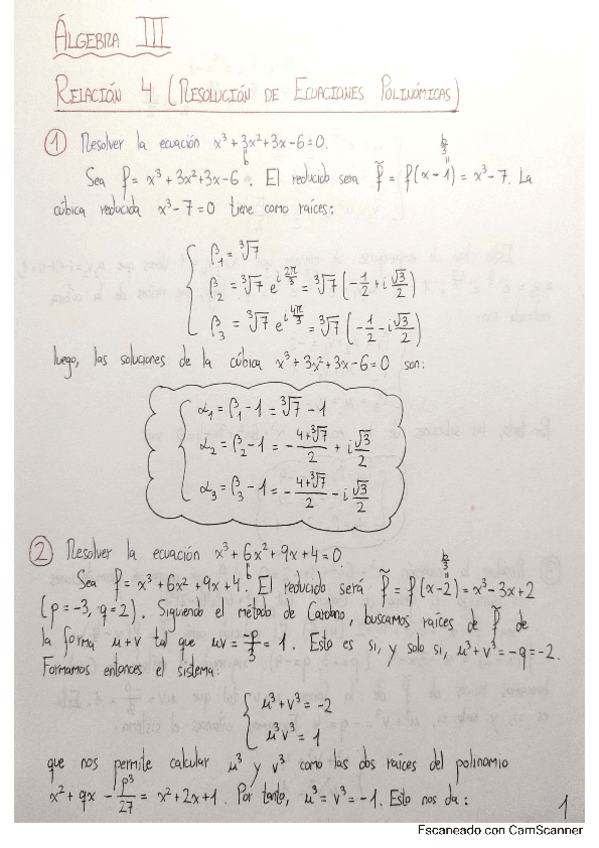 ÁLGEBRA III
RELACIÓN 4 (RESOLUCIÓN DE ECUACIONES POLINÓMICAS)
① Resolver la ecuación x³ + 3x² + 3x - 6 = 0.
b
b/3
Sea f = x³ + 3x² + 3x - 6. El reducido será f̃ = f(x - 1) = x³ - 7. La
cúbica reducida x³ - 7 = 0 tiene como raíces:
β₁ = ∛7
β₂ = ∛7 e^{i 2π/3} = ∛7 (-1/2 + i √3/2)
β₃ = ∛7 e^{i 4π/3} = ∛7 (-1/2 - i √3/2)
luego, las soluciones de la cúbica x³ + 3x² + 3x - 6 = 0 son:
α₁ = β₁ - 1 = ∛7 - 1
α₂ = β₂ - 1 = - (4+∛7)/2 + i √3/2
α₃ = β₃ - 1 = - (4+∛7)/2 - i √3/2
② Resolver la ecuación x³ + 6x² + 9x + 4 = 0.
b
b/3
Sea f = x³ + 6x² + 9x + 4. El reducido será f̃ = f(x-2) = x³ - 3x + 2
(p = -3, q = 2). Siguiendo el método de Cardano, buscamos raíces de f̃ de
la forma u + v tal que uv = -p/3 = 1. Esto es si, y solo si, u³ + v³ = -q = -2.
Formamos entonces el sistema:
u³ + v³ = -2
u³v³ = 1
que nos permite calcular u³ y v³ como las dos raíces del polinomio
x² + qx - p³/27 = x² + 2x + 1. Por tanto, u³ = v³ = -1. Esto nos da:
1
Escaneado con CamScanner